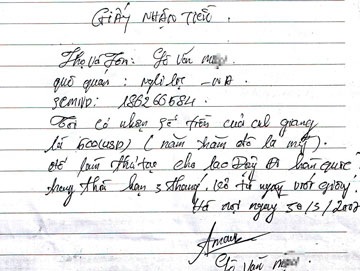 GIẤY NHẬN TIỀN.
Họ và Tên: Lê Văn
quê quán: Nghi lộc _ N.A
SCMND: 186266584
Tôi có nhận số tiền của cil giang
là 500(USD) (năm trăm đô la mỹ).
để làm thủ tục cho lao động đi hàn quốc
trong thời hạn 3 tháng. kể từ ngày viết giấy.
Hà nội ngày 30/5/2007
Lê Văn